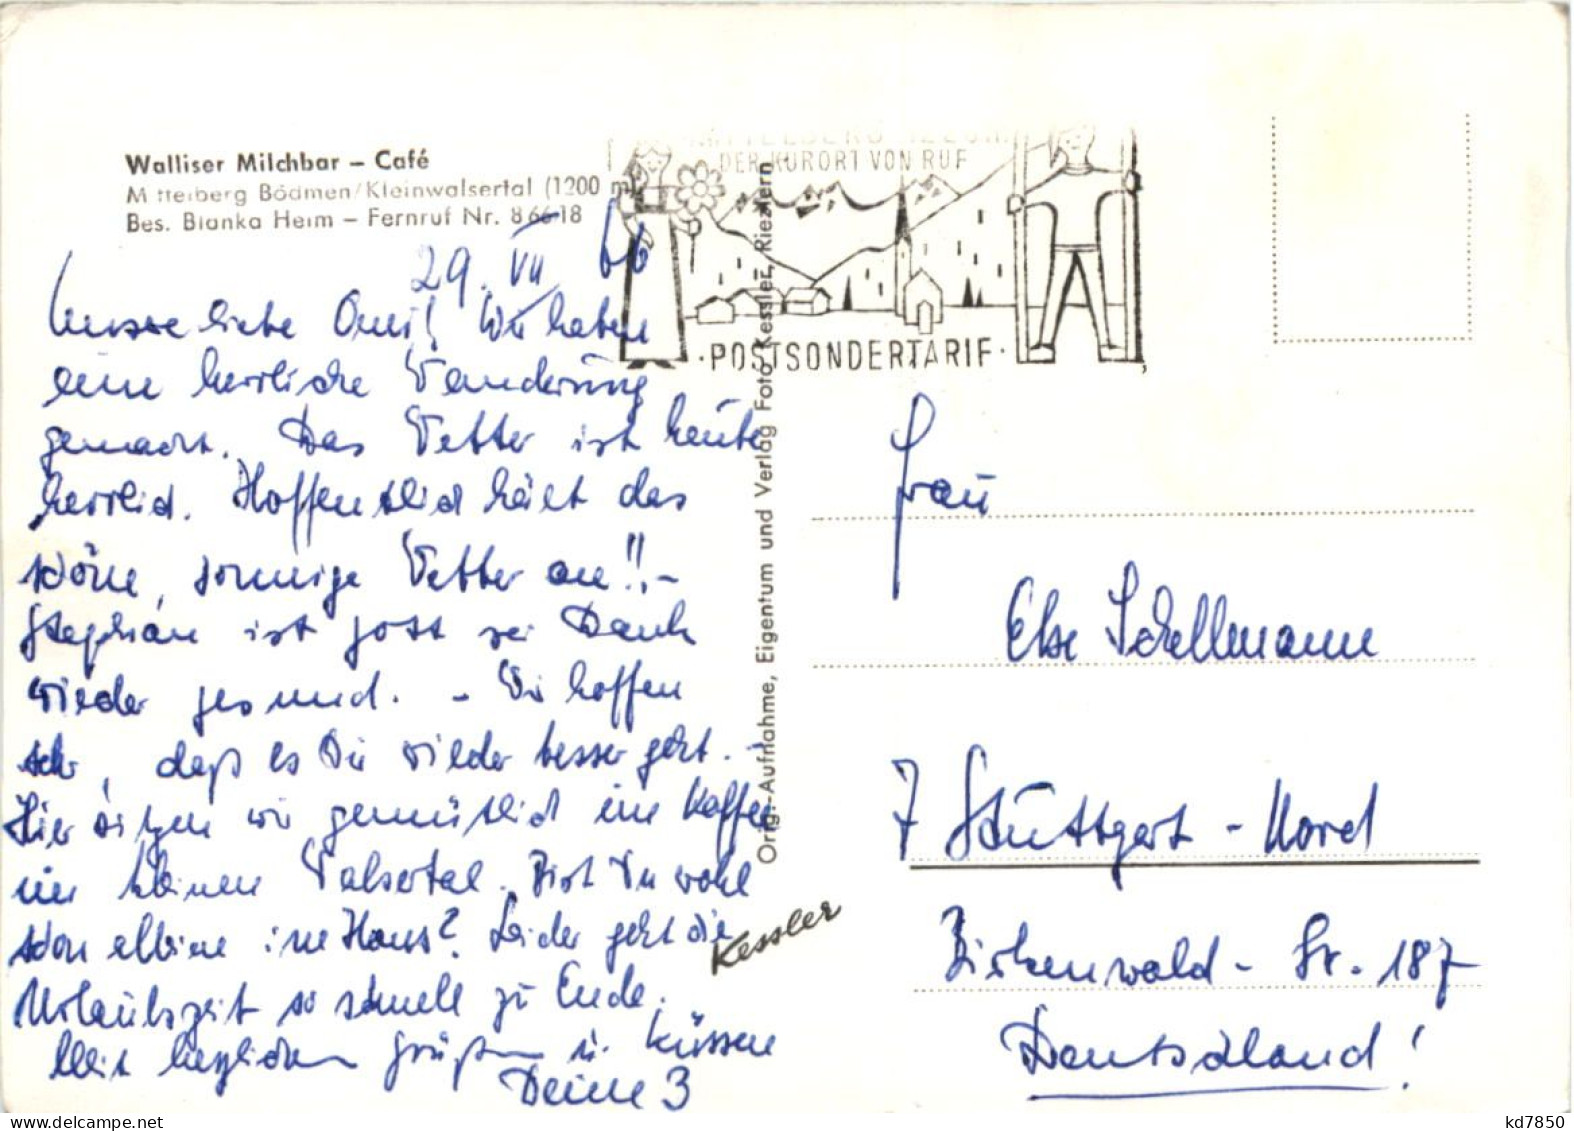 Walliser Milchbar – Café
Mittelberg Bödmen/Kleinwalsertal (1200 m)
Bes. Bianka Heim – Fernruf Nr. 86618
MITTELBERG 1220 M
DER KURORT VON RUF
· POSTSONDERTARIF ·
29. VII 66
Unsere liebe Omi! Wir haben
eine herrliche Wanderung
gemacht. Das Wetter ist heute
herrlich. Hoffentlich hält das
schöne, sonnige Wetter an!! –
Stephan ist gott sei Dank
wieder gesund. – Wir hoffen
sehr, daß es Dir wieder besser geht. –
Hier sitzen wir gemütlich im Kaffee
im kleinen Walsertal. Bist Du wohl
schon alleine im Haus? Leider geht die
Urlaubszeit so schnell zu Ende.
Mit herzlichen Grüßen u. Küssen
Deine 3
Orig.-Aufnahme, Eigentum und Verlag Foto Kessler, Riezlern
Kessler
Frau
Else Schellmann
7 Stuttgart - Nord
Birkenwald - Str. 187
Deutschland!
kd7850